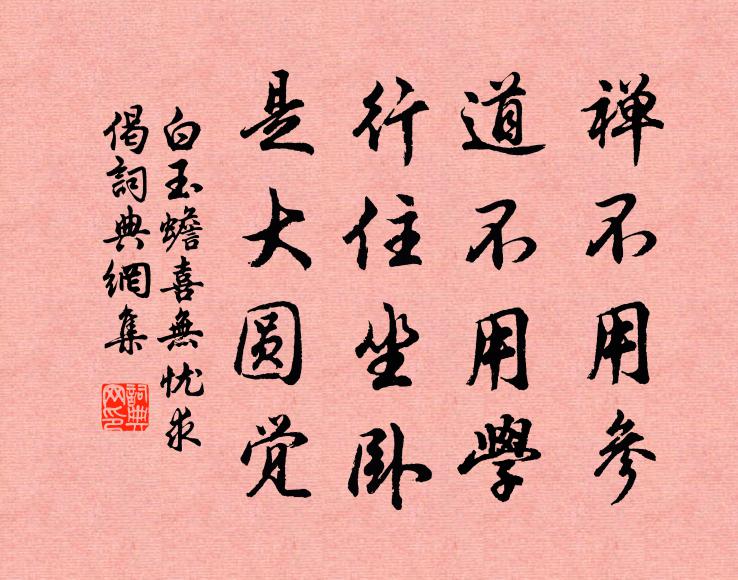 禅不用參
道不用學
行住坐卧
是大圆觉
白玉蟾喜無忧求
偈詞典網集
詞典网印